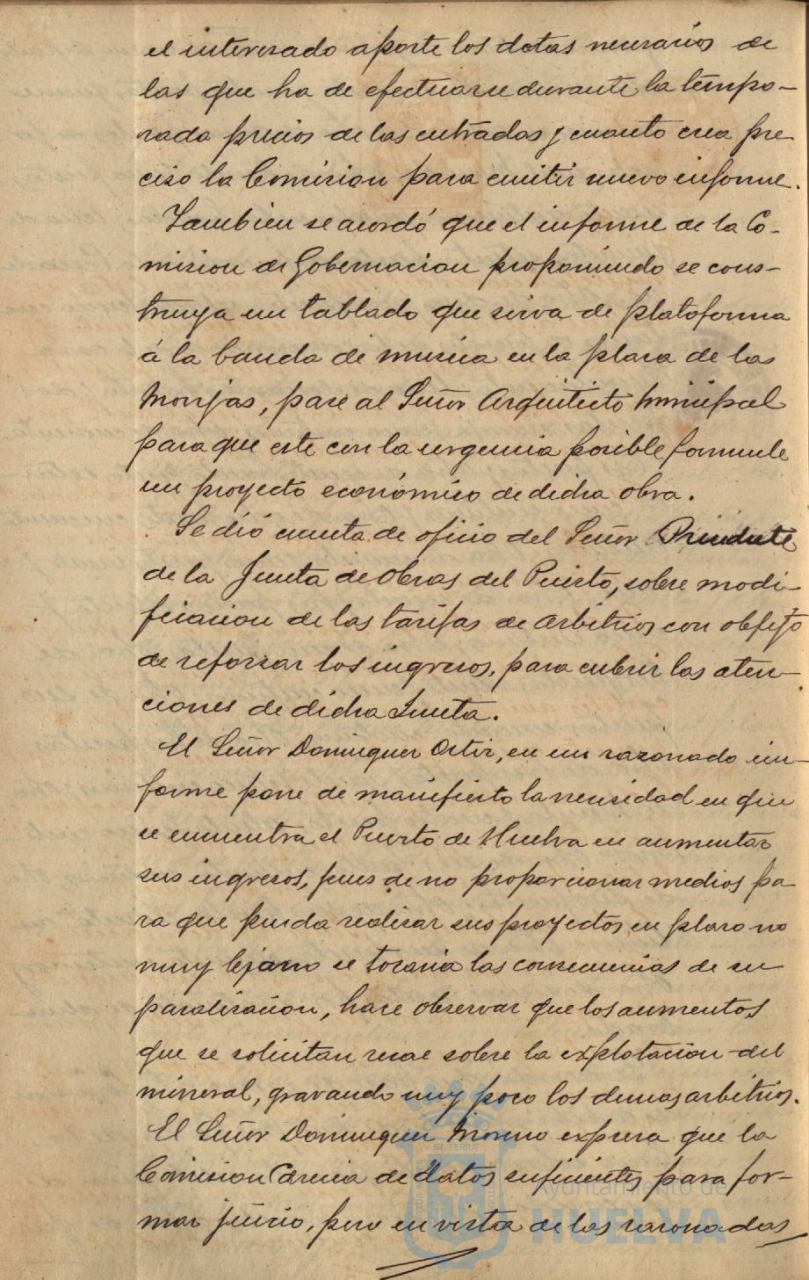 el interesado aporte los datos necesarios de
las que ha de efectuarse durante la tempo-
rada precios de las entradas y cuanto crea pre
ciso la Comision para emitir nuevo informe.
Tambien se acordó que el informe de la Co-
mision de Gobernacion proponiendo se cons-
truya un tablado que sirva de plataforma
á la banda de musica en la plaza de las
Monjas, pase al Señor Arquitecto Municipal
para que este con la urgencia posible formule
un proyecto económico de dicha obra.
Se dió cuenta de oficio del Señor Presidente
de la Junta de Obras del Puerto, sobre modi-
ficacion de las tarifas de arbitrios con objeto
de reforzar los ingresos, para cubrir las aten-
ciones de dicha Junta.
El Señor Dominguez Ortiz, en un razonado in-
forme pone de manifiesto la necesidad en que
se encuentra el Puerto de Huelva en aumentar
sus ingresos, pues de no proporcionar medios pa-
ra que pueda realizar sus proyectos en plazo no
muy lejano se tocaria las consecuencias de su
paralizacion, hace observar que los aumentos
que se solicitan recae sobre la explotacion del
mineral, gravando muy poco los demas arbitrios.
El Señor Dominguez Moreno expresa que la
Comision Carecia de datos suficientes para for-
mar juicio, pero en vista de las razonadas
Ayuntamiento de
HUELVA